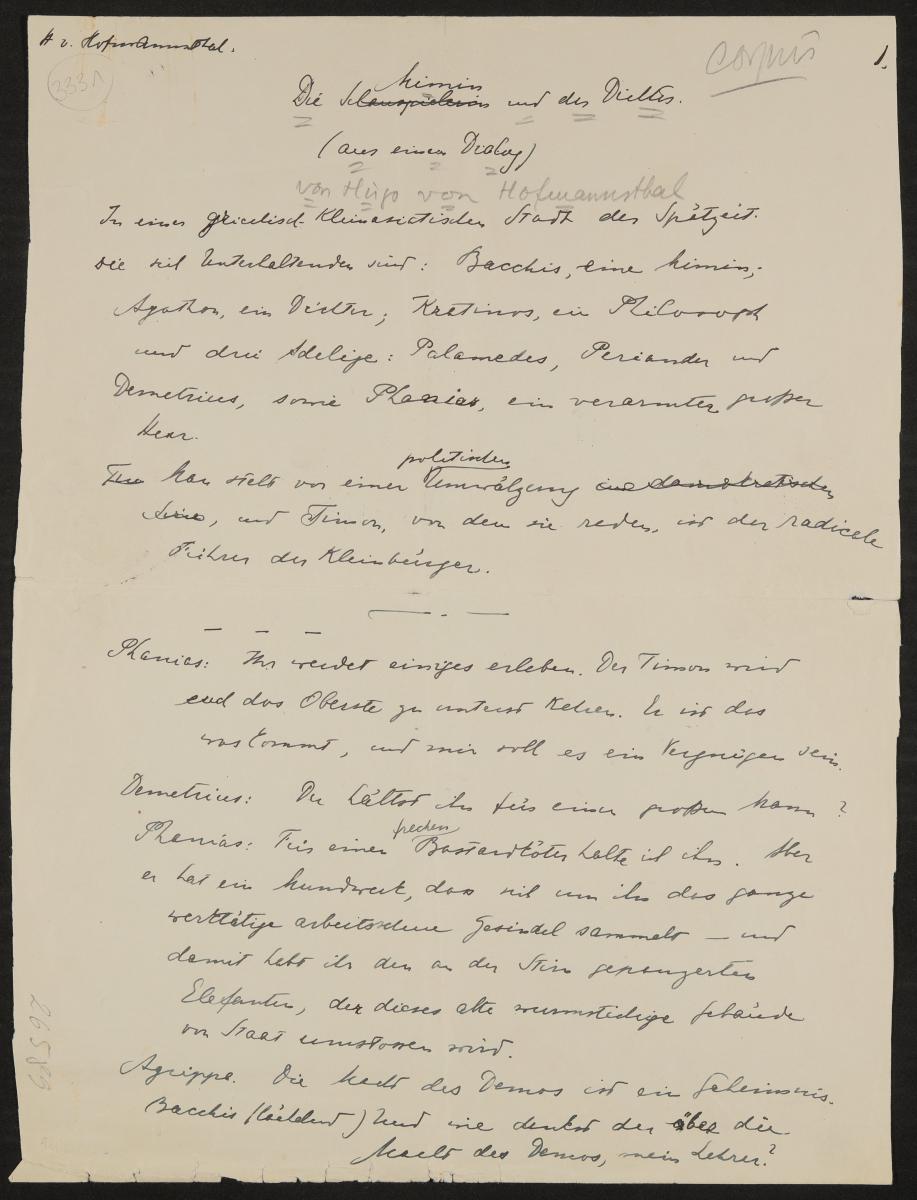 H v. Hofmannsthal.
corpus
1.
3331
Mimin
Die Schauspielerin und der Dichter.
(aus einem Dialog)
von Hugo von Hofmannsthal
In einer griechisch-kleinasiatischen Stadt der Spätzeit.
Die sich Unterhaltenden sind: Bacchis, eine Mimin;
Agathon, ein Dichter; Kratinos, ein Philosoph
und drei Adelige: Palamedes, Periander und
Demetrius, sowie Phanias, ein verarmter großer
Herr.
politischen
Man steht vor einer Umwälzung im demokratischen
Sinne, und Timon, von dem sie reden, ist der radicale
Führer der Kleinbürger.
Phanias: Ihr werdet einiges erleben. Der Timon wird
euch das Oberste zu unterst kehren. Er ist das
was kommt, und mir soll es ein Vergnügen sein.
Demetrius: Du hältst ihn für einen großen Mann?
frechen
Phanias: Für einen Bastardköter halte ich ihn. Aber
er hat ein Mundwerk, dass sich um ihn das ganze
werktätige arbeitsscheue Gesindel sammelt — und
damit habt ihr den an der Stirn gepanzerten
Elefanten, der dieses alte wurmstichige Gebäude
von Staat umstossen wird.
Agrippa. Die Macht des Demos ist ein Geheimnis.
Bacchis (lächelnd) Und wie denkst du über die
Macht des Demos, mein Lehrer?
26585